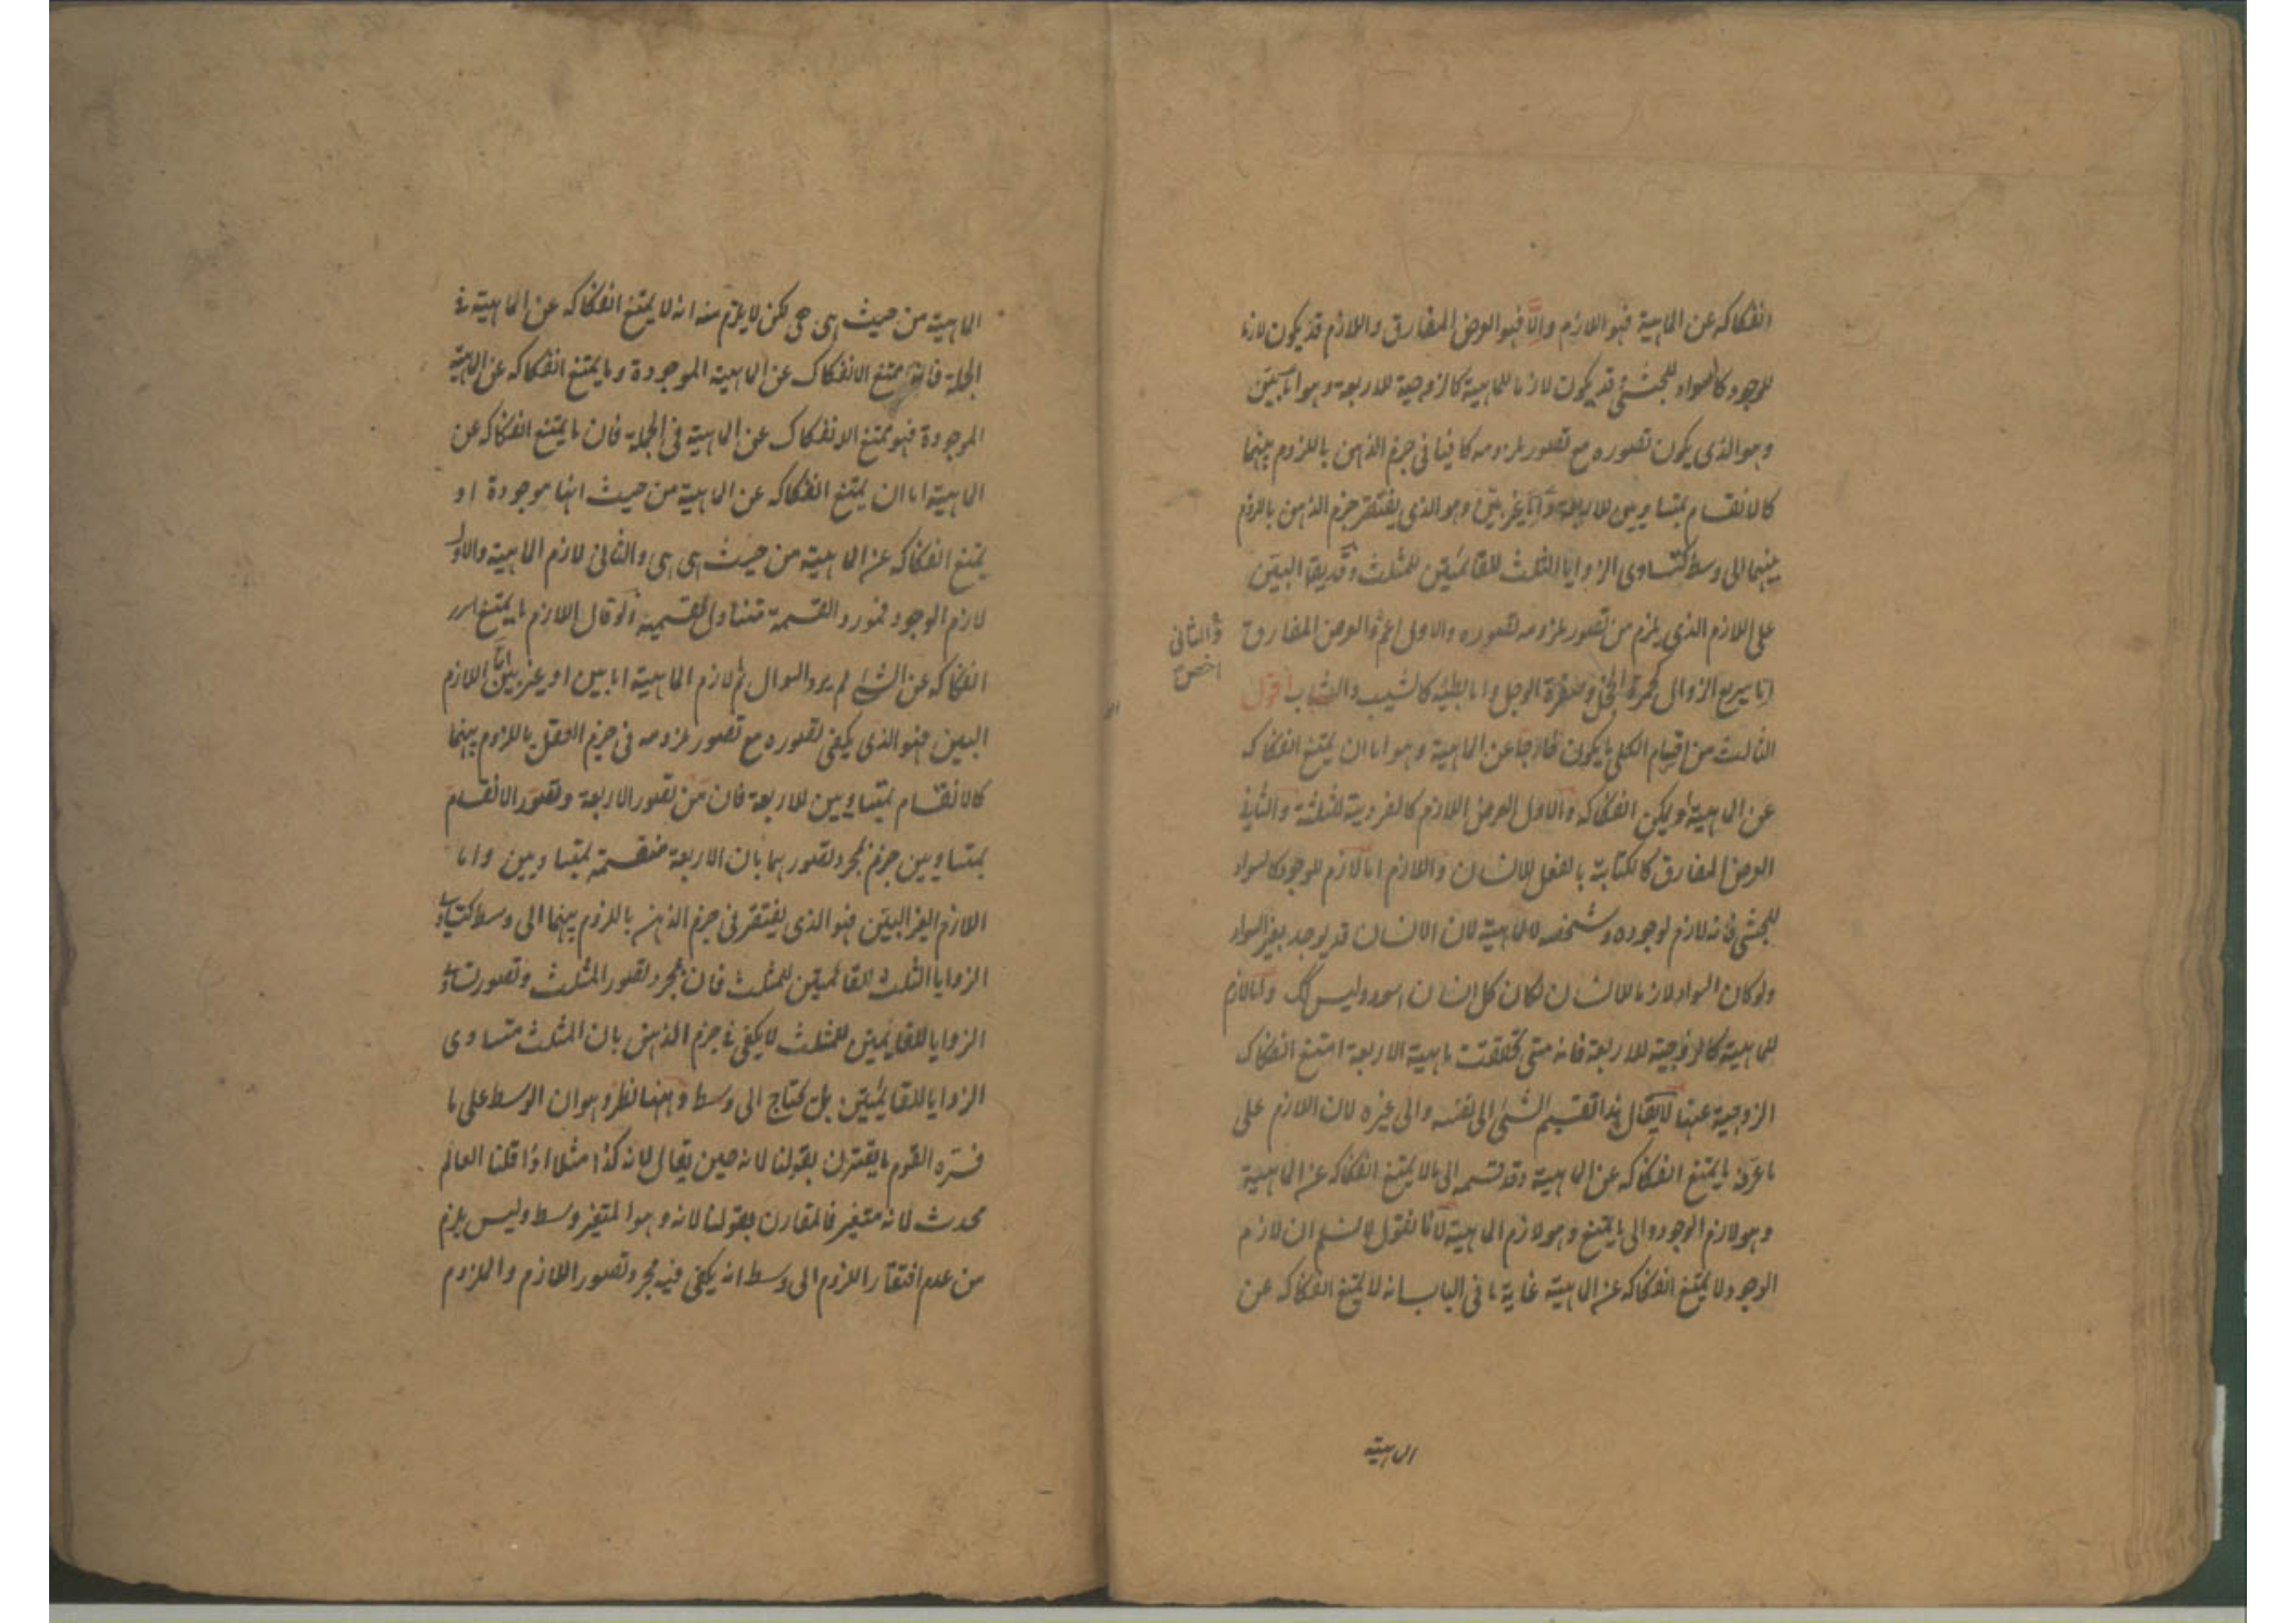 انفكاكه عن الماهية فهو اللازم والّا فهو العرض المفارق واللازم قد يكون لازما
للوجود كالسواد للحبشى و قد يكون لازما للماهية كالزوجية للاربعة وهو اما بيّن
وهو الذى يكون تصوره مع تصور ملزومه كافيا فى جزم الذهن باللزوم بينهما
كالانقسام بمتساويين للاربعة وامّا غير بيّن وهو الذى يفتقر جزم الذهن باللزوم
بينهما الى وسط كتساوى الزوايا الثلث للقائمتين للمثلث وقد يقال البيّن
على اللازم الذى يلزم من تصور ملزومه تصوره والاول اعم والعرض المفارق
والثانى
اخص
امّا سريع الزوال كحمرة الخجل وصفرة الوجل واما بطيئه كالشيب والشباب اقول
الثالث من اقسام الكلى ما يكون خارجا عن الماهية وهو اما ان يمتنع انفكاكه
عن الماهية او يمكن انفكاكه والاول العرض اللازم كالفردية للثلثة والثانى
العرض المفارق كالكتابة بالفعل للانسان واللازم اما لازم للوجود كالسواد
للحبشى فانه لازم لوجوده وشخصه لا لماهيته لان الانسان قد يوجد بغير السواد
ولو كان السواد لازما للانسان لكان كل انسان اسود وليس كك واما لازم
للماهية كالزوجية للاربعة فانه متى تحققت ماهية الاربعة امتنع انفكاك
الزوجية عنها لا يقال هذا تقسيم الشئ الى نفسه والى غيره لان اللازم على
ما عرّفه ما يمتنع انفكاكه عن الماهية وقد قسمه الى ما لا يمتنع انفكاكه عن الماهية
وهو لازم الوجود والى ما يمتنع وهو لازم الماهية لانا نقول لا نسلم ان لازم
الوجود لا يمتنع انفكاكه عن الماهية غاية ما فى الباب انه لا يمتنع انفكاكه عن
الماهية
الماهية من حيث هى هى لكن لا يلزم منه انه لا يمتنع انفكاكه عن الماهية فى
الجملة فانه ممتنع الانفكاك عن الماهية الموجودة وما يمتنع انفكاكه عن الماهية
الموجودة فهو ممتنع الانفكاك عن الماهية فى الجملة فان ما يمتنع انفكاكه عن
الماهية اما ان يمتنع انفكاكه عن الماهية من حيث انها موجودة او
يمتنع انفكاكه عن الماهية من حيث هى هى والثانى لازم الماهية والاول
لازم الوجود فمورد القسمة متناول لقسميه ولو قال اللازم ما يمتنع
انفكاكه عن الشئ لم يرد السوال ثم لازم الماهية اما بين او غير بيّن امّا اللازم
البين فهو الذى يكفى تصوره مع تصور ملزومه فى جزم العقل باللزوم بينهما
كالانقسام بمتساويين للاربعة فان من تصور الاربعة وتصوّر الانقسام
بمتساويين جزم بمجرد تصورهما بان الاربعة منقسمة بمتساويين واما
اللازم الغير البيّن فهو الذى يفتقر فى جزم الذهن باللزوم بينهما الى وسط كتساوى
الزوايا الثلث للقائمتين للمثلث فان مجرد تصور المثلث وتصور تساوى
الزوايا للقائمتين للمثلث لا يكفى فى جزم الذهن بان المثلث متساوى
الزوايا للقائمتين بل يحتاج الى وسط وههنا نظر وهو ان الوسط على ما
فسّره القوم ما يقترن بقولنا لانه حين يقال لانه كذا مثلا اذا قلنا العالم
محدث لانه متغير فالمقارن بقولنا لانه وهو المتغير وسط وليس يلزم
من عدم افتقار اللزوم الى وسط انه يكفى فيه مجرد تصور اللازم والملزوم